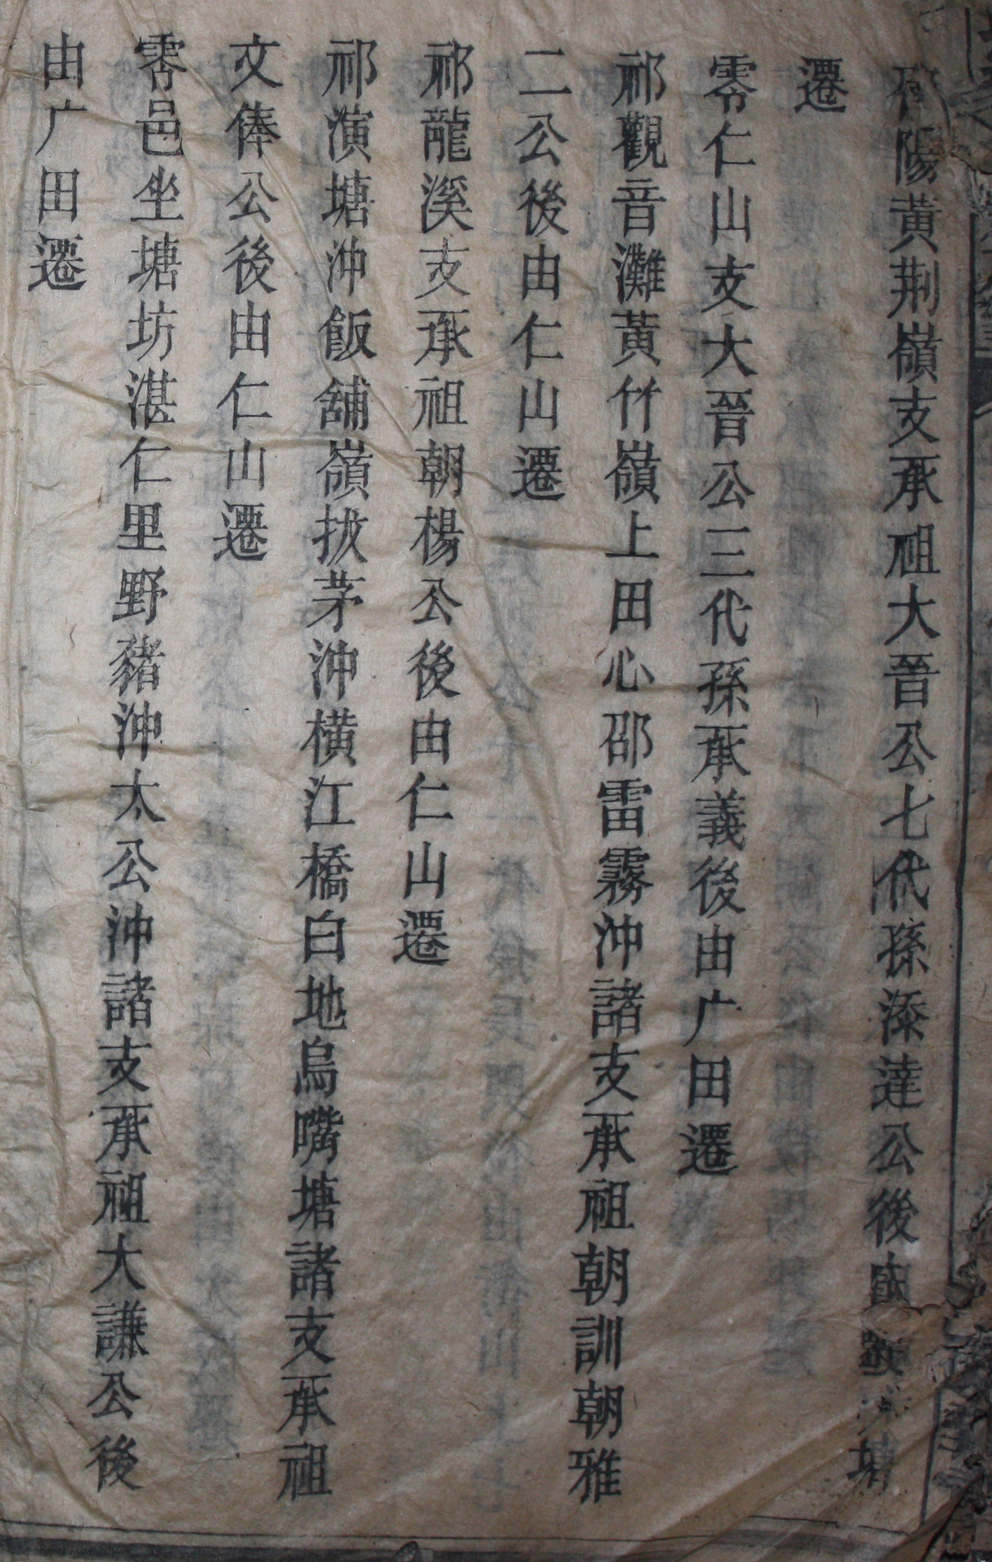 陽黃荆嶺支承祖大晉公七代孫添達公後
遷
零仁山支大晉公三代孫承義後由广田遷
祁觀音灘黃竹嶺上田心邵雷霧沖諸支承祖朝訓朝雅
二公後由仁山遷
祁龍溪支承祖朝楊公後由仁山遷
祁演塘沖飯舖嶺拔茅沖橫江橋白地烏嘴塘諸支承祖
文俸公後由仁山遷
零邑坐塘坊湛仁里野豬沖太公沖諸支承祖大謙公後
由广田遷